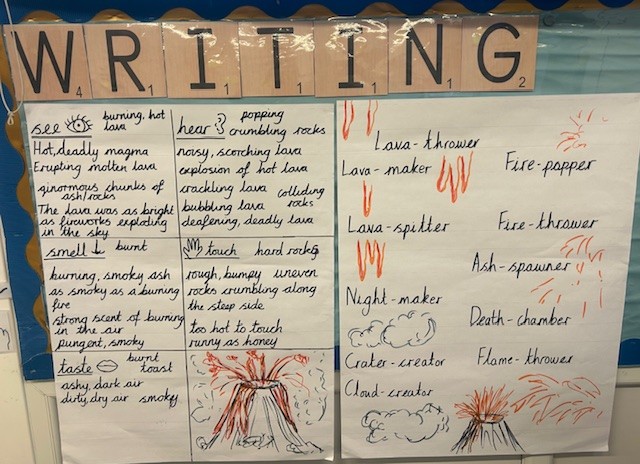 WRITING
4 1 1 1 1 1 2
see
burning, hot
lava
Hot, deadly magma
Erupting molten lava
ginormous chunks of
ash/rocks
The lava was as bright
as fireworks exploding
in the sky
hear
popping
crumbling rocks
noisy, scorching lava
explosion of hot lava
crackling lava
colliding
rocks
bubbling lava
deafening, deadly lava
smell
burnt
burning, smoky ash
as smoky as a burning
fire
strong scent of burning
in the air
pungent, smoky
touch
hard rocks
rough, bumpy uneven
rocks crumbling along
the steep side
too hot to touch
runny as honey
taste
burnt
toast
ashy, dark air
dirty, dry air smoky
Lava-thrower
Lava-maker
Fire-popper
Lava-spitter
Fire-thrower
Ash-spawner
Night-maker
Death-chamber
Crater-creator
Flame-thrower
Cloud-creator